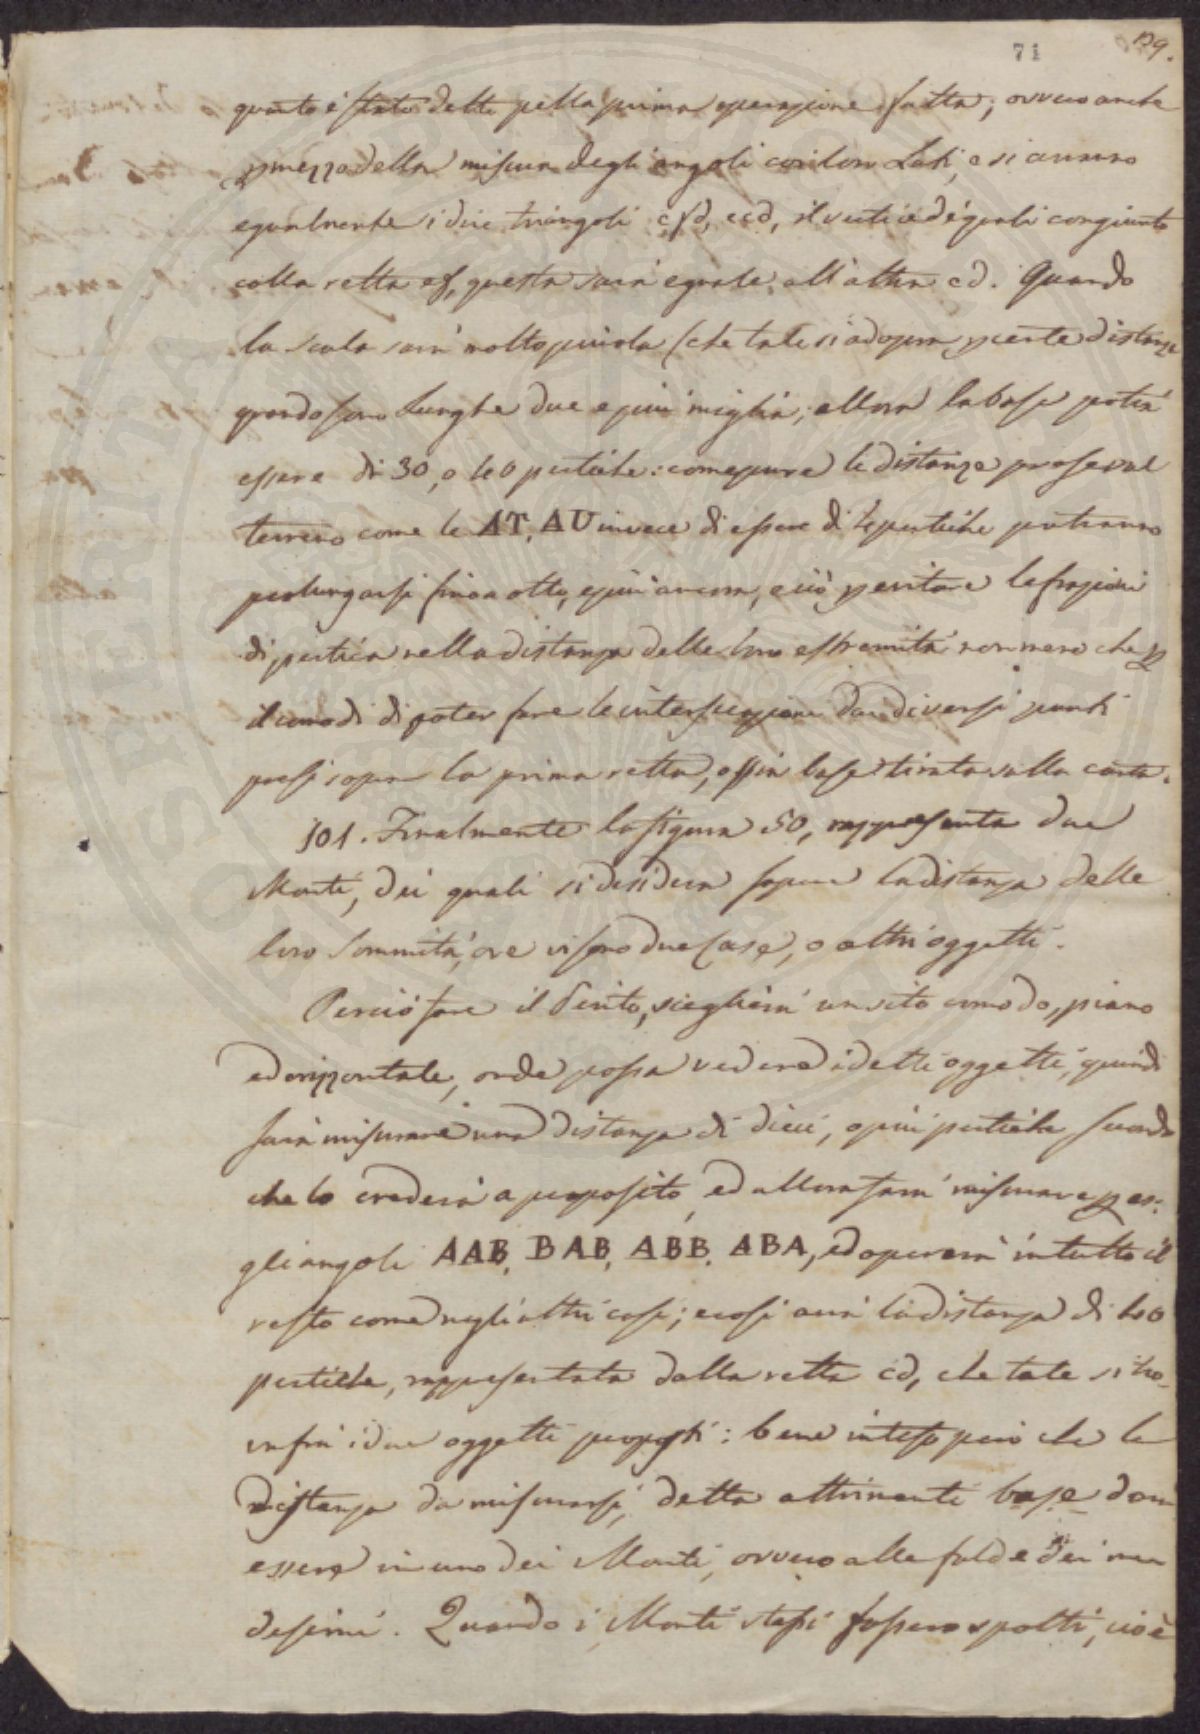 71
139.
quanto è stato detto pella prima operazione fatta; ovvero anche
p mezzo della misura degli angoli coi loro Lati, e si avranno
egualmente i due triangoli cfd, ecd, il vertice de' quali congiunto
colla retta ef, questa sarà eguale all'altra cd. Quando
la scala sarà molto piccola (che tale si adopra p certe distanze
quando sono lunghe due e più miglia, allora la base potrà
essere di 30, o 40 pertiche: come pure le distanze prese sul
terreno come le AT, AU invece di essere di 4 pertiche potranno
prolungarsi fino a otto, e più ancora, e ciò p evitare le frazioni
di pertica nella distanza delle loro estremità non meno che p
il comodo di poter fare le intersezioni dai diversi punti
presi sopra la prima retta, ossia base tirata sulla carta.
101. Finalmente la figura 50, rappresenta due
Monti, dei quali si desidera sapere la distanza delle
loro Sommità, ove vi sono due Case, o altri oggetti.
Perciò fare il Perito, sceglierà un sito comodo, piano
ed orizzontale, onde possa vedere i detti oggetti, quindi
farà misurare una distanza di dieci, o più pertiche secondo
che lo crederà a proposito, ed allora farà misurare p es:
gli angoli AAB, BAB, ABB, ABA, ed opererà in tutto il
resto come negli altri casi; e così avrà la distanza di 400
pertiche, rappresentata dalla retta cd, che tale si tro-
va fra i due oggetti proposti: bene inteso però che la
distanza da misurarsi, detta altrimenti base dovrà
essere in uno dei Monti, ovvero alle falde dei me
desimi. Quando i Monti stessi fossero folti, cioè